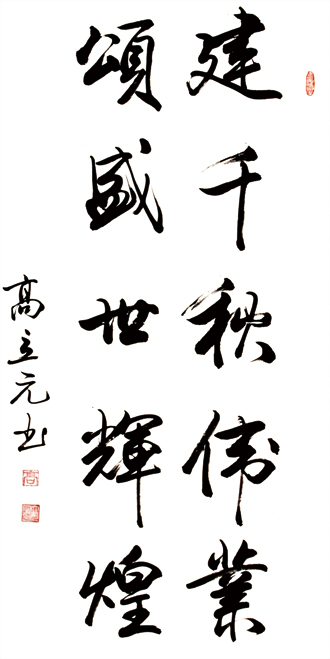 建千秋伟業
頌盛世輝煌
高立元书